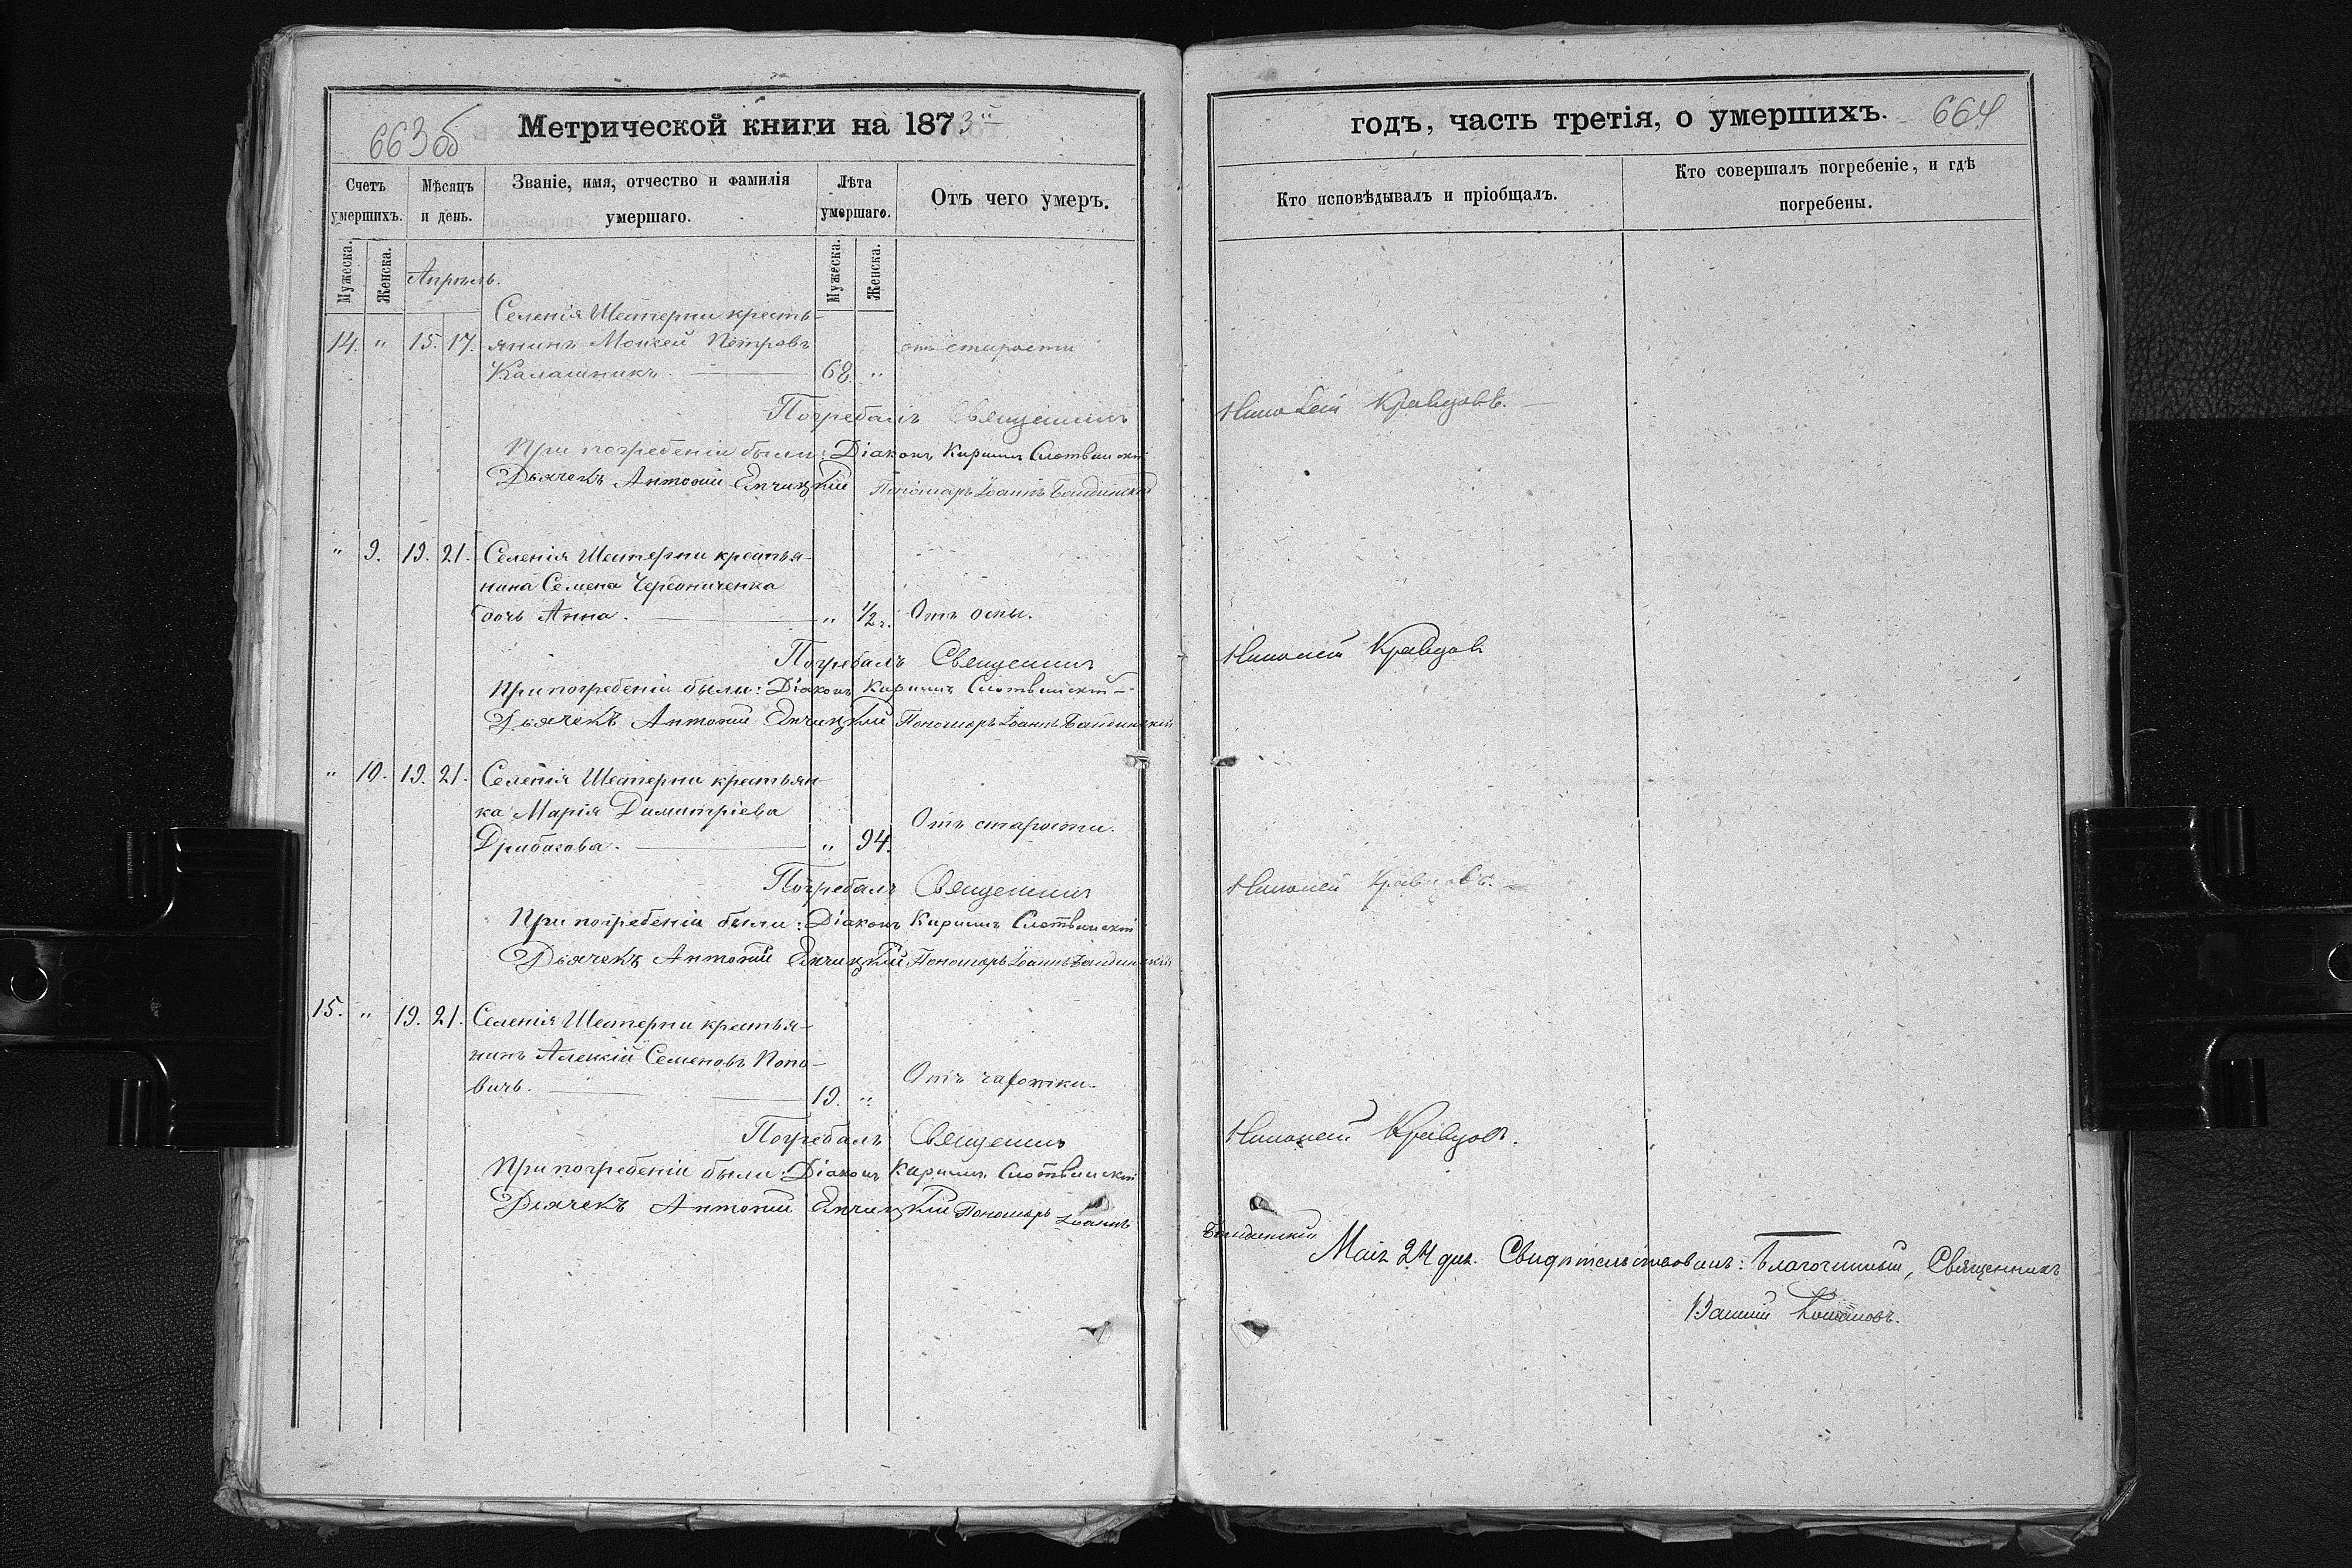 663об
Метрической книги на 1873й
Счетъ умершихъ.
Мѣсяцъ и день.
Званіе, имя, отчество и фамилія умершаго.
Лѣта умершаго.
Отъ чего умеръ.
Мужеска.
Женска.
Мужеска.
Женска.
Апрѣль.
Селенія Шестерни кресть-
14. " 15. 17. янинъ Моисей Петровъ отъ старости
Калашникъ. 68 "
Погребалъ Священникъ
При погребеніи были: Діаконъ Кириллъ
Дьячекъ Антоній Пономарь Іоаннъ
" 9. 19. 21. Селенія Шестерни крестья-
нина Семена Чередниченка
дочь Анна. " 1/2 г. Отъ оспы.
Погребалъ Священникъ
При погребеніи были: Діаконъ Кириллъ
Дьячекъ Антоній Пономарь Іоаннъ
" 10. 19. 21. Селенія Шестерни крестьян
ка Марія Димитріева
" 94. Отъ старости.
Погребалъ Священникъ
При погребеніи были: Діаконъ Кириллъ
Дьячекъ Антоній Пономарь Іоаннъ
15. " 19. 21. Селенія Шестерни крестья-
нинъ Алексій Семеновъ Попо-
вичъ. 19. " Отъ чахотки.
Погребалъ Священникъ
При погребеніи были: Діаконъ Кириллъ
Дьячекъ Антоній Пономарь Іоаннъ
годъ, часть третія, о умершихъ.
664
Кто исповѣдывалъ и пріобщалъ.
Кто совершалъ погребеніе, и гдѣ погребены.
Николай Кравцовъ.
Николай Кравцов
Николай Кравцовъ.
Николай Кравцовъ.
Маія 24 дня. Свидѣтельствовалъ: Благочинный, Священникъ